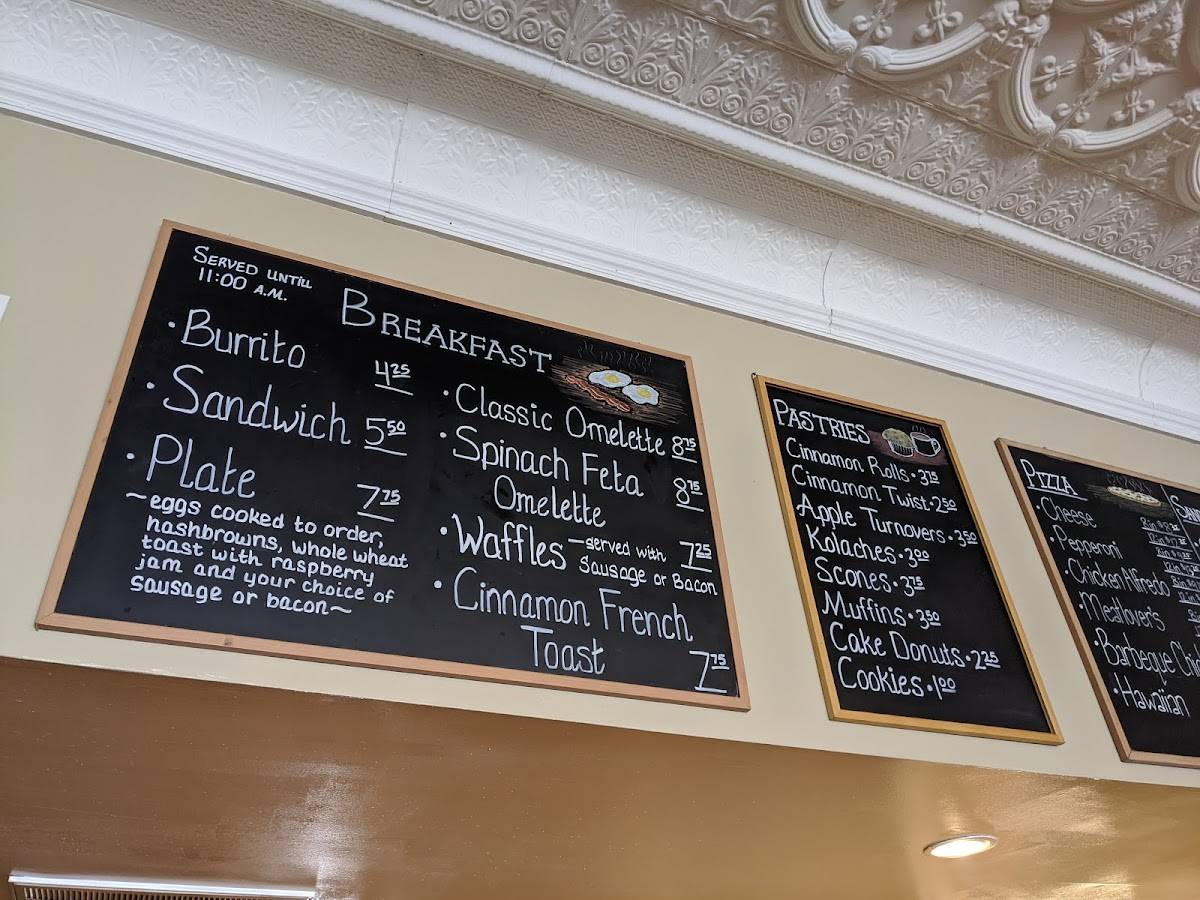 SERVED UNTIL
11:00 A.M.
BREAKFAST
• Burrito 4.25
• Sandwich 5.50
• Plate 7.75
~eggs cooked to order,
hashbrowns, whole wheat
toast with raspberry
jam and your choice of
sausage or bacon~
• Classic Omelette 8.75
• Spinach Feta
Omelette 8.75
• Waffles —served with
Sausage or Bacon 7.25
• Cinnamon French
Toast 7.75
PASTRIES
Cinnamon Rolls • 3.75
Cinnamon Twist • 2.50
Apple Turnovers • 3.50
Kolaches • 3.00
Scones • 3.75
Muffins • 3.50
Cake Donuts • 2.25
Cookies • 1.00
PIZZA
• Cheese
• Pepperoni
• Chicken Alfredo
• Meatlover's
• Barbeque
• Hawaiian